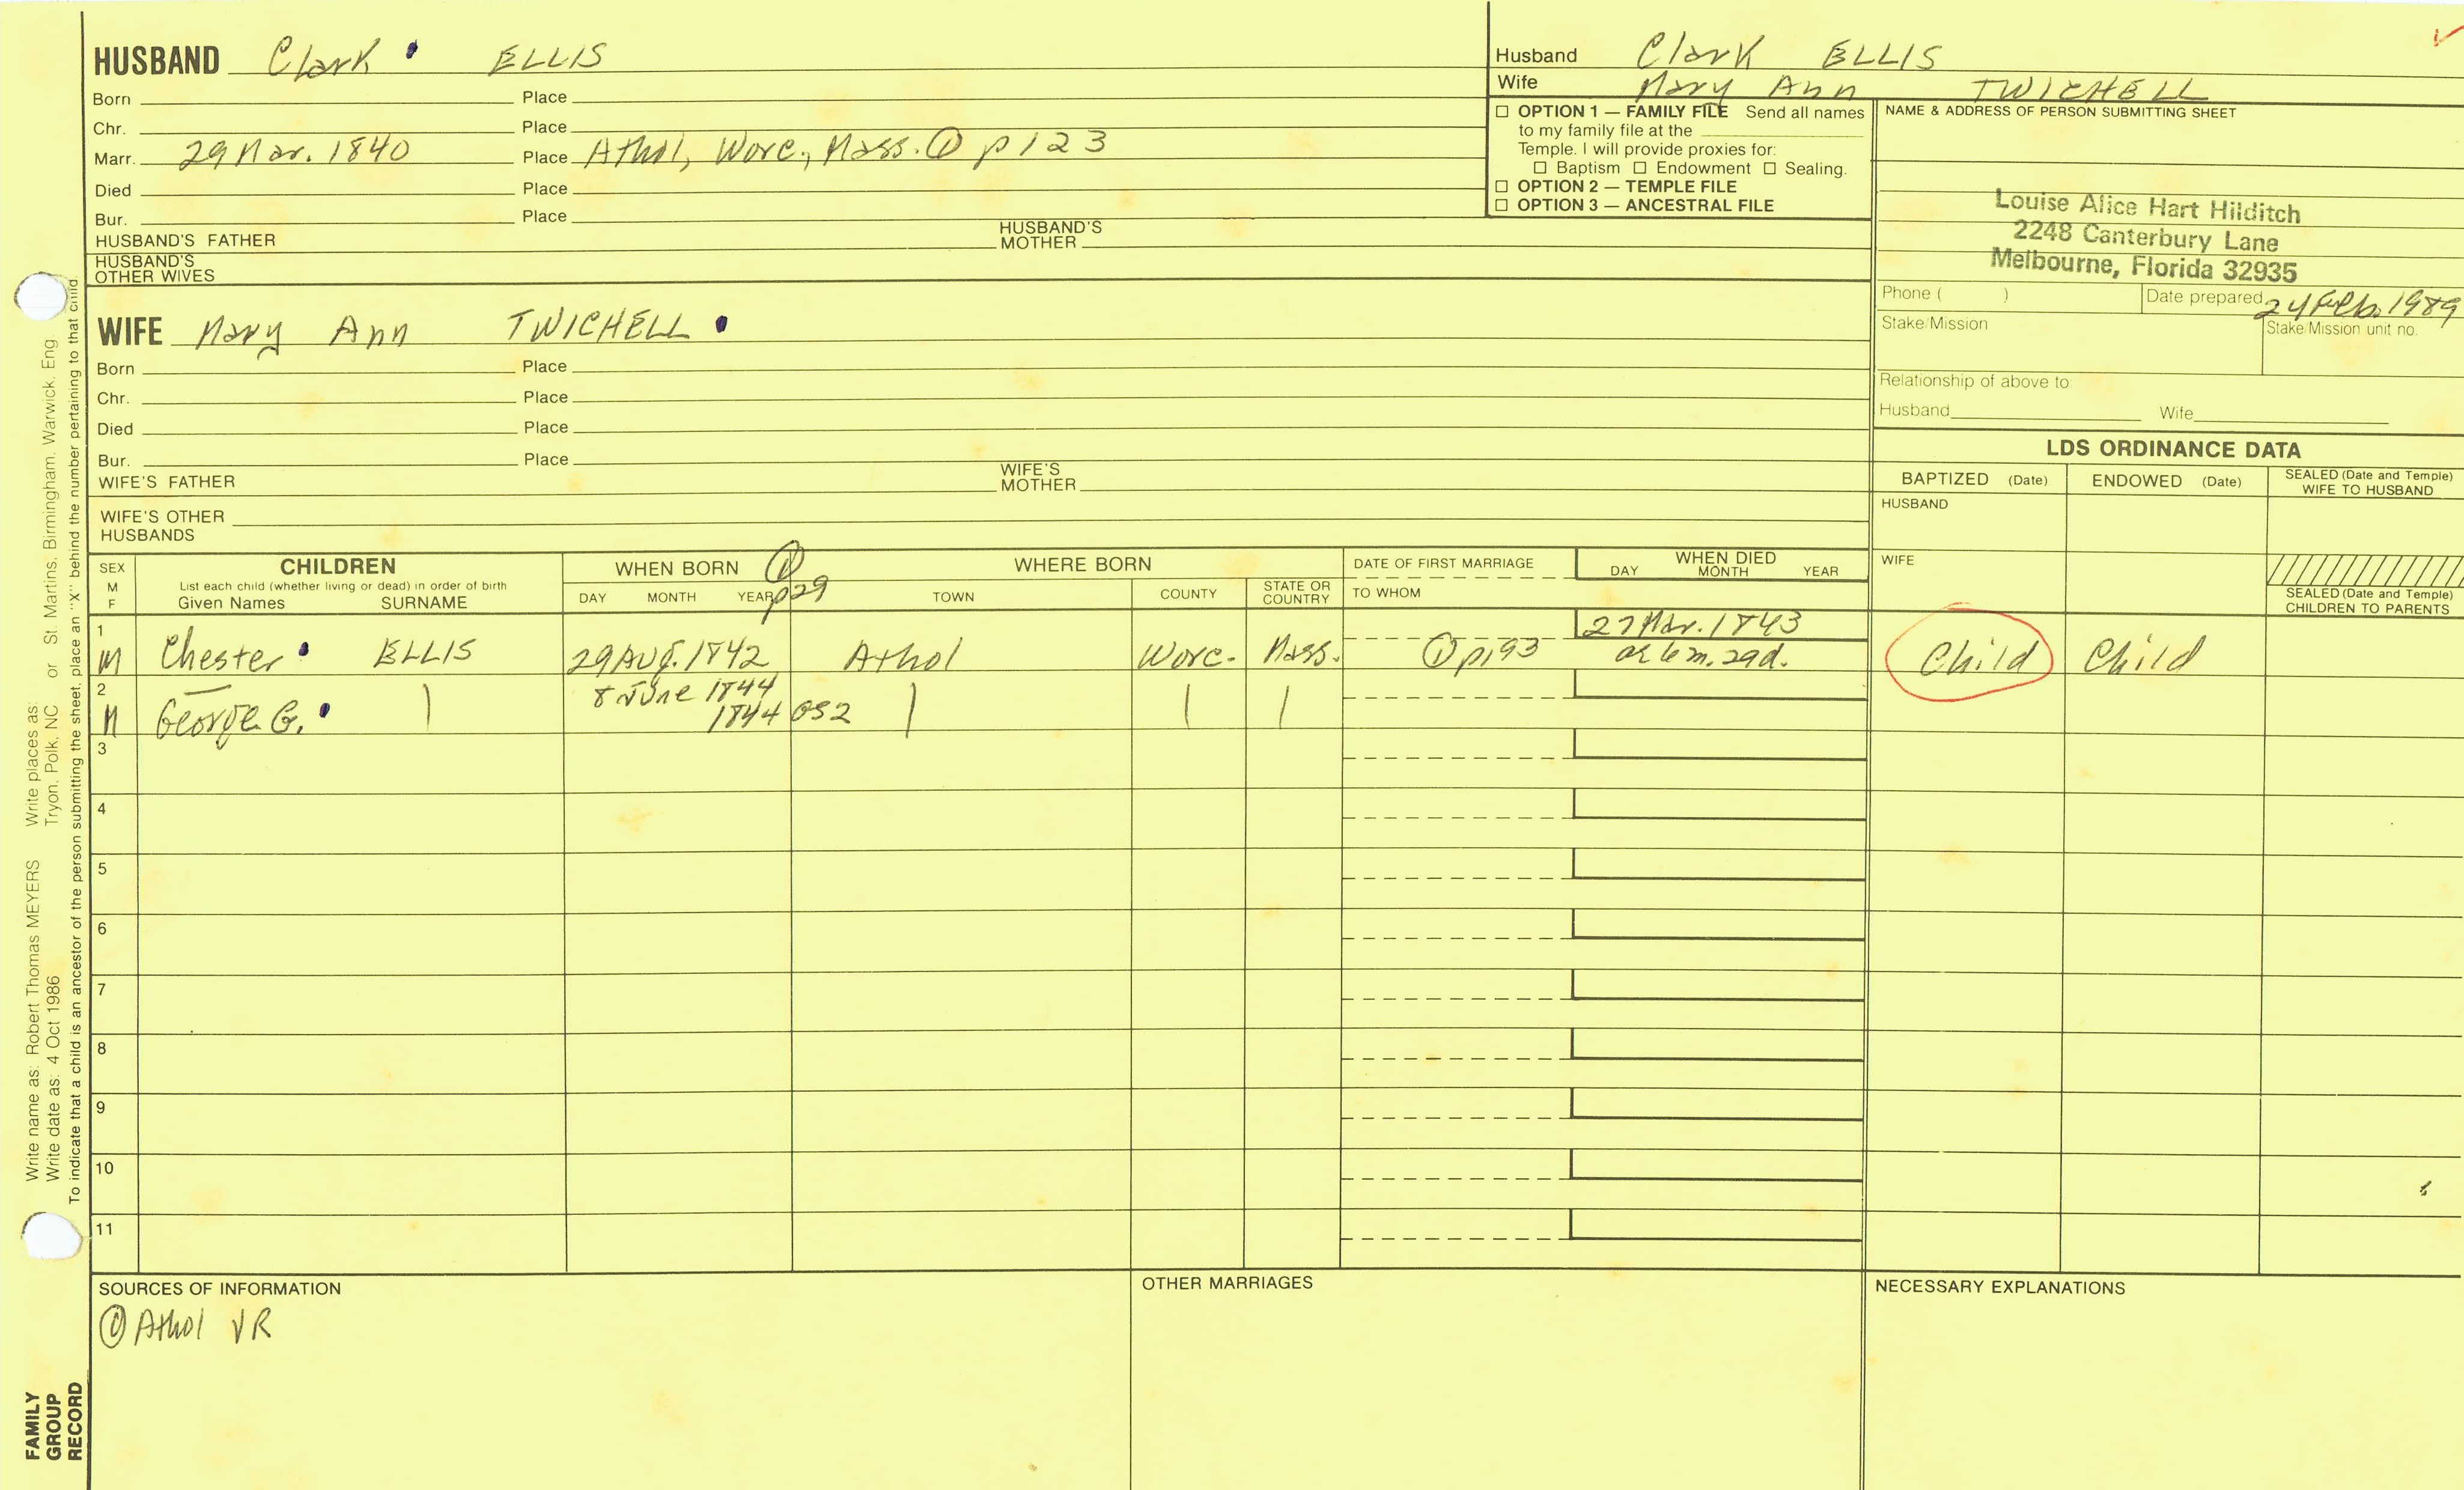 HUSBAND Clark ELLIS
Born Place
Chr. Place
Marr. 29 Mar. 1840 Place Athol, Worc., Mass. ① p 123
Died Place
Bur. Place
HUSBAND'S FATHER HUSBAND'S MOTHER
HUSBAND'S OTHER WIVES
WIFE Mary Ann TWICHELL
Born Place
Chr. Place
Died Place
Bur. Place
WIFE'S FATHER WIFE'S MOTHER
WIFE'S OTHER HUSBANDS
Husband Clark ELLIS
Wife Mary Ann TWICHELL
☐ OPTION 1 — FAMILY FILE Send all names
to my family file at the
Temple. I will provide proxies for:
☐ Baptism ☐ Endowment ☐ Sealing.
☐ OPTION 2 — TEMPLE FILE
☐ OPTION 3 — ANCESTRAL FILE
NAME & ADDRESS OF PERSON SUBMITTING SHEET
Louise Alice Hart Hilditch
2248 Canterbury Lane
Melbourne, Florida 32935
Phone ( ) Date prepared 24 Feb. 1989
Stake/Mission Stake/Mission unit no.
Relationship of above to
Husband Wife
LDS ORDINANCE DATA
BAPTIZED (Date) ENDOWED (Date) SEALED (Date and Temple)
WIFE TO HUSBAND
HUSBAND
WIFE
SEALED (Date and Temple)
CHILDREN TO PARENTS
SEX
M
F
CHILDREN
List each child (whether living or dead) in order of birth
Given Names SURNAME
WHEN BORN ① p29
DAY MONTH YEAR
WHERE BORN
TOWN COUNTY STATE OR COUNTRY
DATE OF FIRST MARRIAGE
TO WHOM
WHEN DIED
DAY MONTH YEAR
1 M Chester ELLIS 29 Aug. 1842 Athol Worc. Mass. ① p193 27 Mar. 1843 ae 6 m. 29d. Child Child
2 M George G. | 8 June 1844 | | |
1844 GS2
3
4
5
6
7
8
9
10
11
SOURCES OF INFORMATION
① Athol VR
OTHER MARRIAGES
NECESSARY EXPLANATIONS
Write name as: Robert Thomas MEYERS Write places as: St. Martins, Birmingham, Warwick, Eng.
Write date as: 4 Oct 1986 or Tryon, Polk, NC
To indicate that a child is an ancestor of the person submitting the sheet, place an "X" behind the number pertaining to that child.
FAMILY
GROUP
RECORD